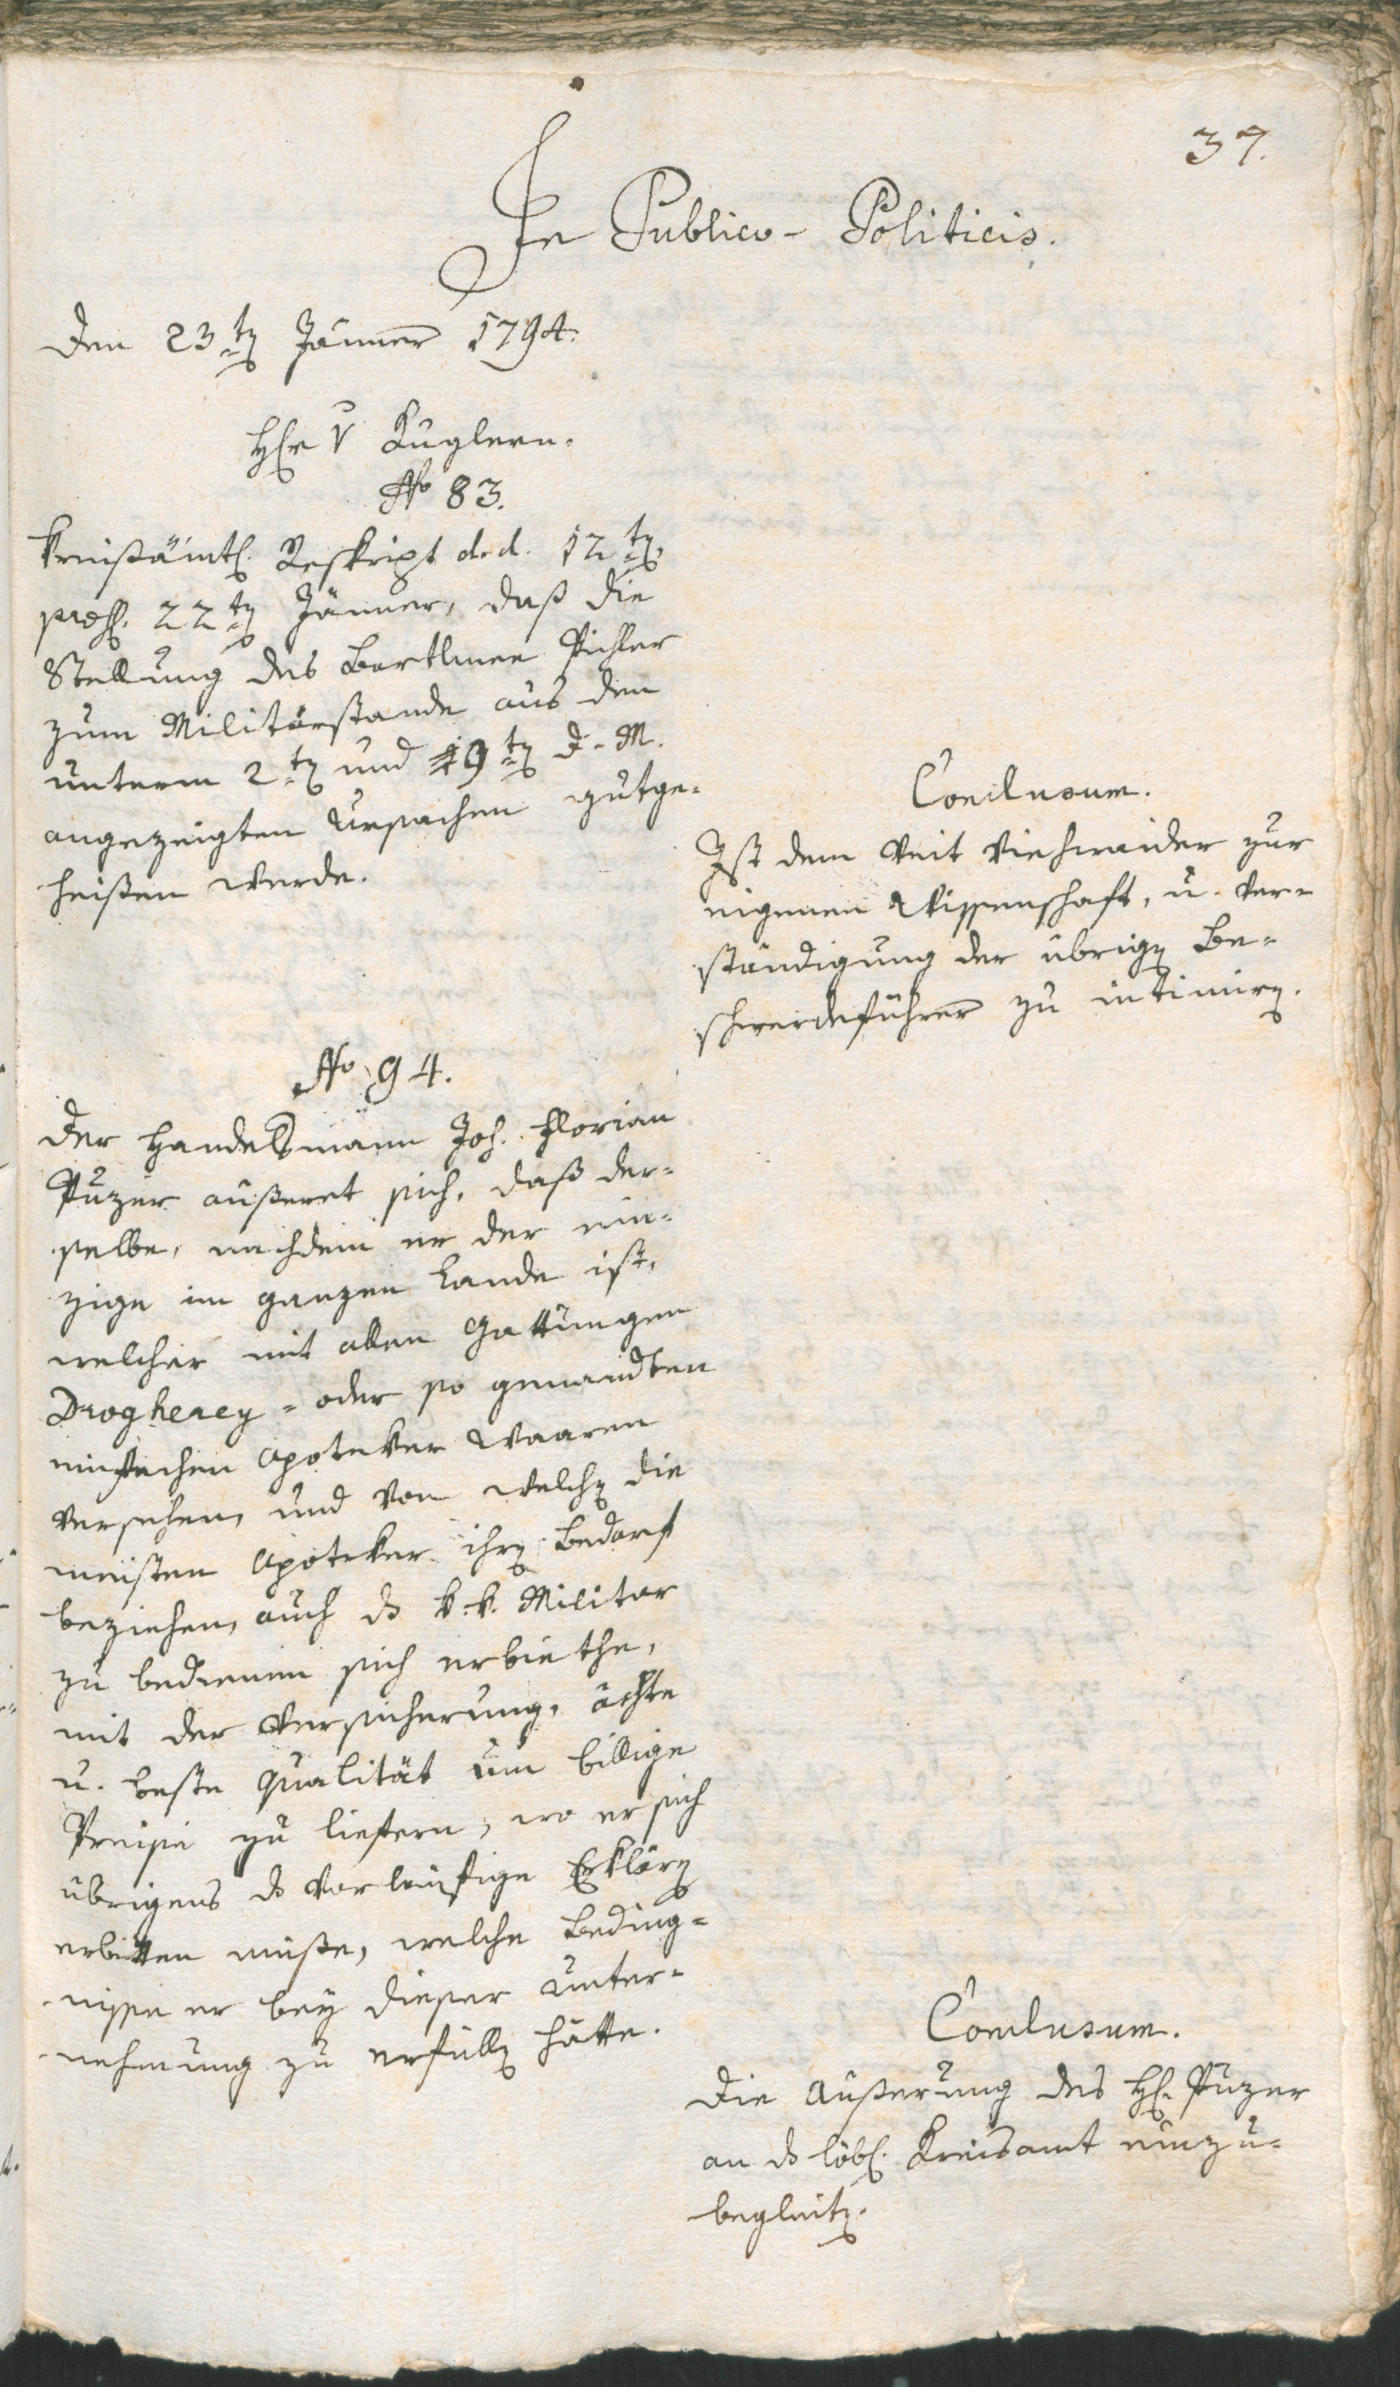 37.
In Publico-Politicis.
Den 23ten Jänner 1794.
Herr v Kuglern.
No 83.
Kreisämtl. Reskript d. d. 12ten,
praes. 22ten Jänner, daß die
Stellung des Bartlmee Pichler
zum Militärstande aus den
unterm 2ten und 19ten d. M.
angezeigten Ursachen gutge-
heißen werde.
Conclusum.
Ist dem Veit Viehweider zur
eigenen Wissenschaft, u. Ver-
ständigung der übrigen Be-
schwerdeführer zu intimiren.
No 94.
Der Handelsmann Joh. Florian
Puzer äußeret sich, daß der-
selbe, nachdem er der ein-
zige im ganzen Lande ist,
welcher mit allen Gattungen
Drogherey- oder so genandten
einfachen Apoteker Waaren
versehen, und von welchen die
meisten Apoteker ihren Bedarf
beziehen, auch das k. k. Militar
zu bedienen sich erbiethe,
mit der Versicherung, ächte
u. beste Qualität um billige
Preise zu liefern, wo er sich
übrigens die vorläufige Erklärung
erbitten müße, welche Beding-
nisse er bey dieser Unter-
nehmung zu erfüllen hätte.
Conclusum.
Die Äußerung des H. Puzer
an das löbl. Kreisamt einzu-
begleiten.